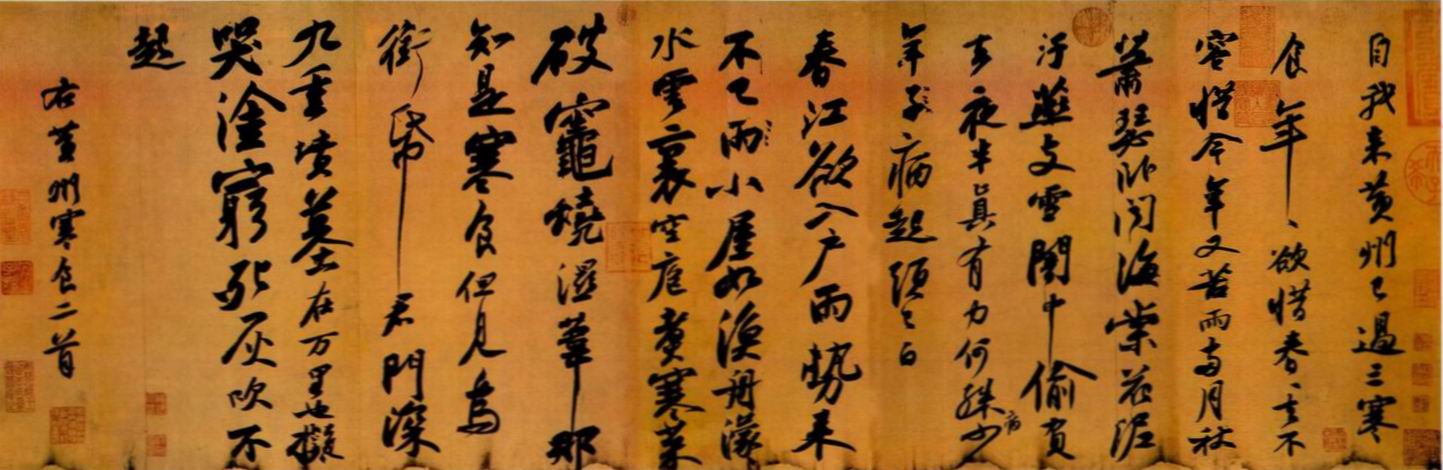 自我来黄州已過三寒
食年〻欲惜春〻去不
容惜今年又苦雨兩月秋
蕭瑟卧聞海棠花泥
汙燕支雪闇中偷負
去夜半真有力何殊少病
年子病起頭已白
春江欲入户雨勢来
不已雨小屋如漁舟濛〻
水雲裏空庖煑寒菜
破竈燒濕葦那
知是寒食但見烏
銜帋君門深
九重墳墓在万里也擬
哭塗窮死灰吹不
起
右黄州寒食二首